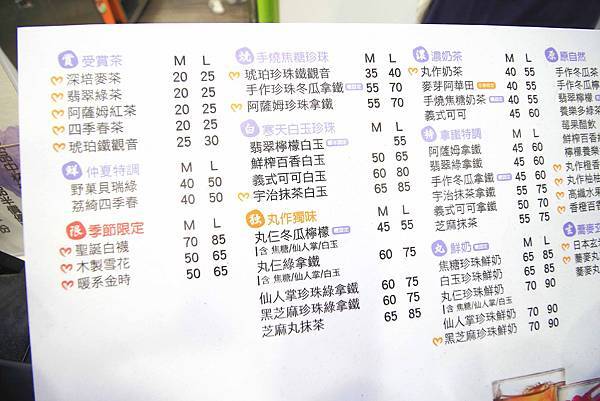 賞 受賞茶 M L
深培麥茶 20 25
翡翠綠茶 20 25
阿薩姆紅茶 20 25
四季春茶 20 25
琥珀鐵觀音 25 30
鮮 仲夏特調 M L
野菓貝瑞綠 40 50
荔綺四季春 40 50
限 季節限定 M L
聖誕白襪 70 85
木製雪花 50 65
暖系金時 50 65
燒 手燒焦糖珍珠 M L
琥珀珍珠鐵觀音 35 40
手作珍珠冬瓜拿鐵 55 70
阿薩姆珍珠拿鐵 55 70
白 寒天白玉珍珠 M L
翡翠檸檬白玉 55
鮮榨百香白玉 50 65
義式可可白玉 60 80
宇治抹茶白玉 65 85
独 丸作獨味 M L
丸仨冬瓜檸檬 45 55
含 焦糖/仙人掌/白玉
丸仨綠拿鐵 60 75
含 焦糖/仙人掌/白玉
仙人掌珍珠綠拿鐵 60 75
黑芝麻珍珠綠拿鐵 60 75
芝麻丸抹茶 65 85
濃 濃奶茶 M L
丸作奶茶 40 55
麥芽阿華田 40 55
手燒焦糖奶茶 40 55
義式可可 45 60
拿鐵特調 M L
阿薩姆拿鐵 45 60
翡翠綠拿鐵 45 60
手作冬瓜拿鐵 45 60
宇治抹茶拿鐵 55 75
義式可可拿鐵 50 70
芝麻抹茶 55 75
丸 鮮奶 M L
焦糖珍珠鮮奶 65 85
白玉珍珠鮮奶 65 85
丸仨珍珠鮮奶 70 90
含 焦糖/仙人掌/白玉
仙人掌珍珠鮮奶 70 90
黑芝麻珍珠鮮奶 70 90
原 原自然
手作冬瓜
手作冬瓜檸
翡翠檸檬
養樂多綠
莓果醋飲
檸檬養樂
丸作橙香
丸作柚柚
高纖水果
香橙百香
蕎麥
日本玄
蕎麥丸
蕎麥丸